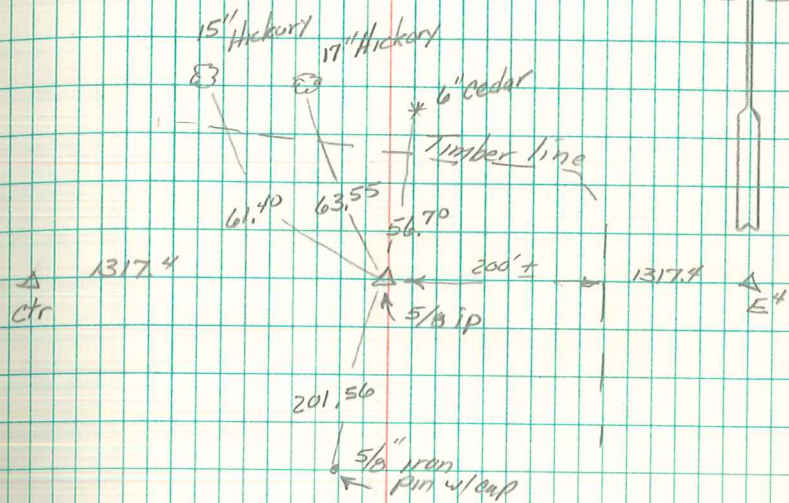 15" Hickory
17" Hickory
6" cedar
Timber line
61.40
63.55
56.70
1317.4
200'±
1317.4
ctr
5/8 ip
E4
201.56
5/8" iron
pin w/cap